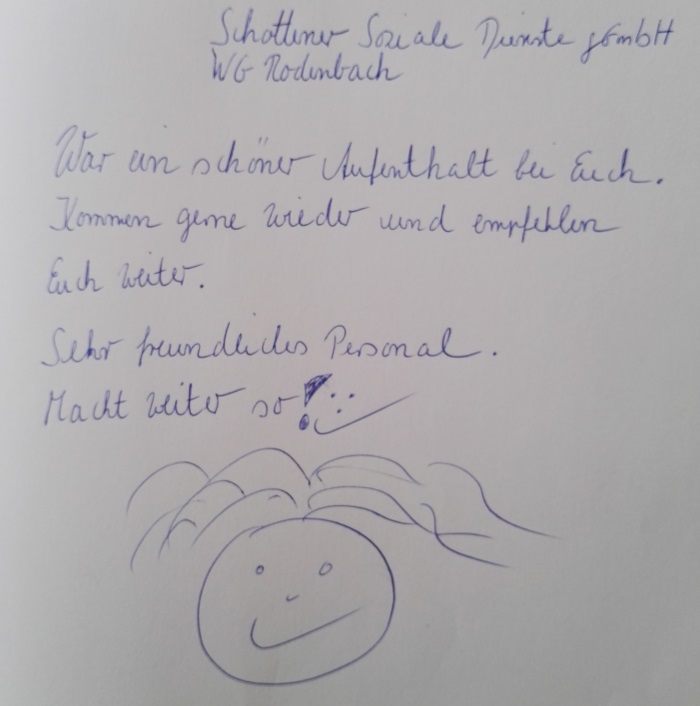 Schottener Soziale Dienste gGmbH
WG Rodenbach
War ein schöner Aufenthalt bei Euch.
Kommen gerne wieder und empfehlen
Euch weiter.
Sehr freundliches Personal.
Macht weiter so!